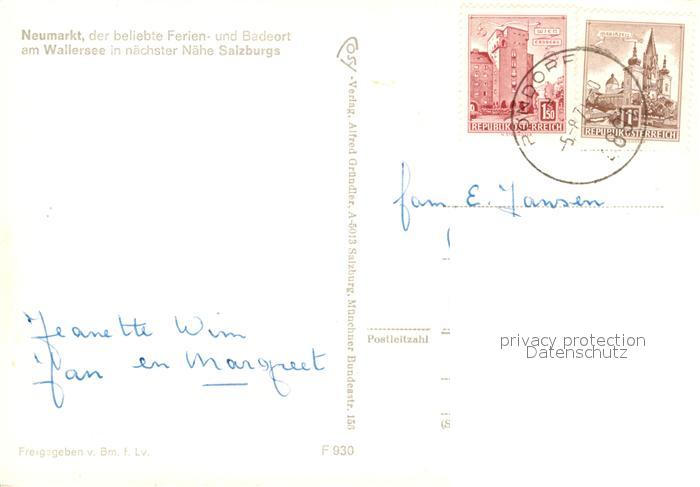 Neumarkt, der beliebte Ferien- und Badeort
am Wallersee in nächster Nähe Salzburgs
WIEN
1.50
REPUBLIK ÖSTERREICH
MARIAZELL
1S
REPUBLIK ÖSTERREICH
COSY-Verlag, Alfred Gründler, A-5013 Salzburg, Münchner Bundesstr. 156
fam E. Jansen
Jeanette Wim
Jan en Margreet
Postleitzahl
privacy protection
Datenschutz
(S
Freigegeben v. Bm. f. Lv.
F 930